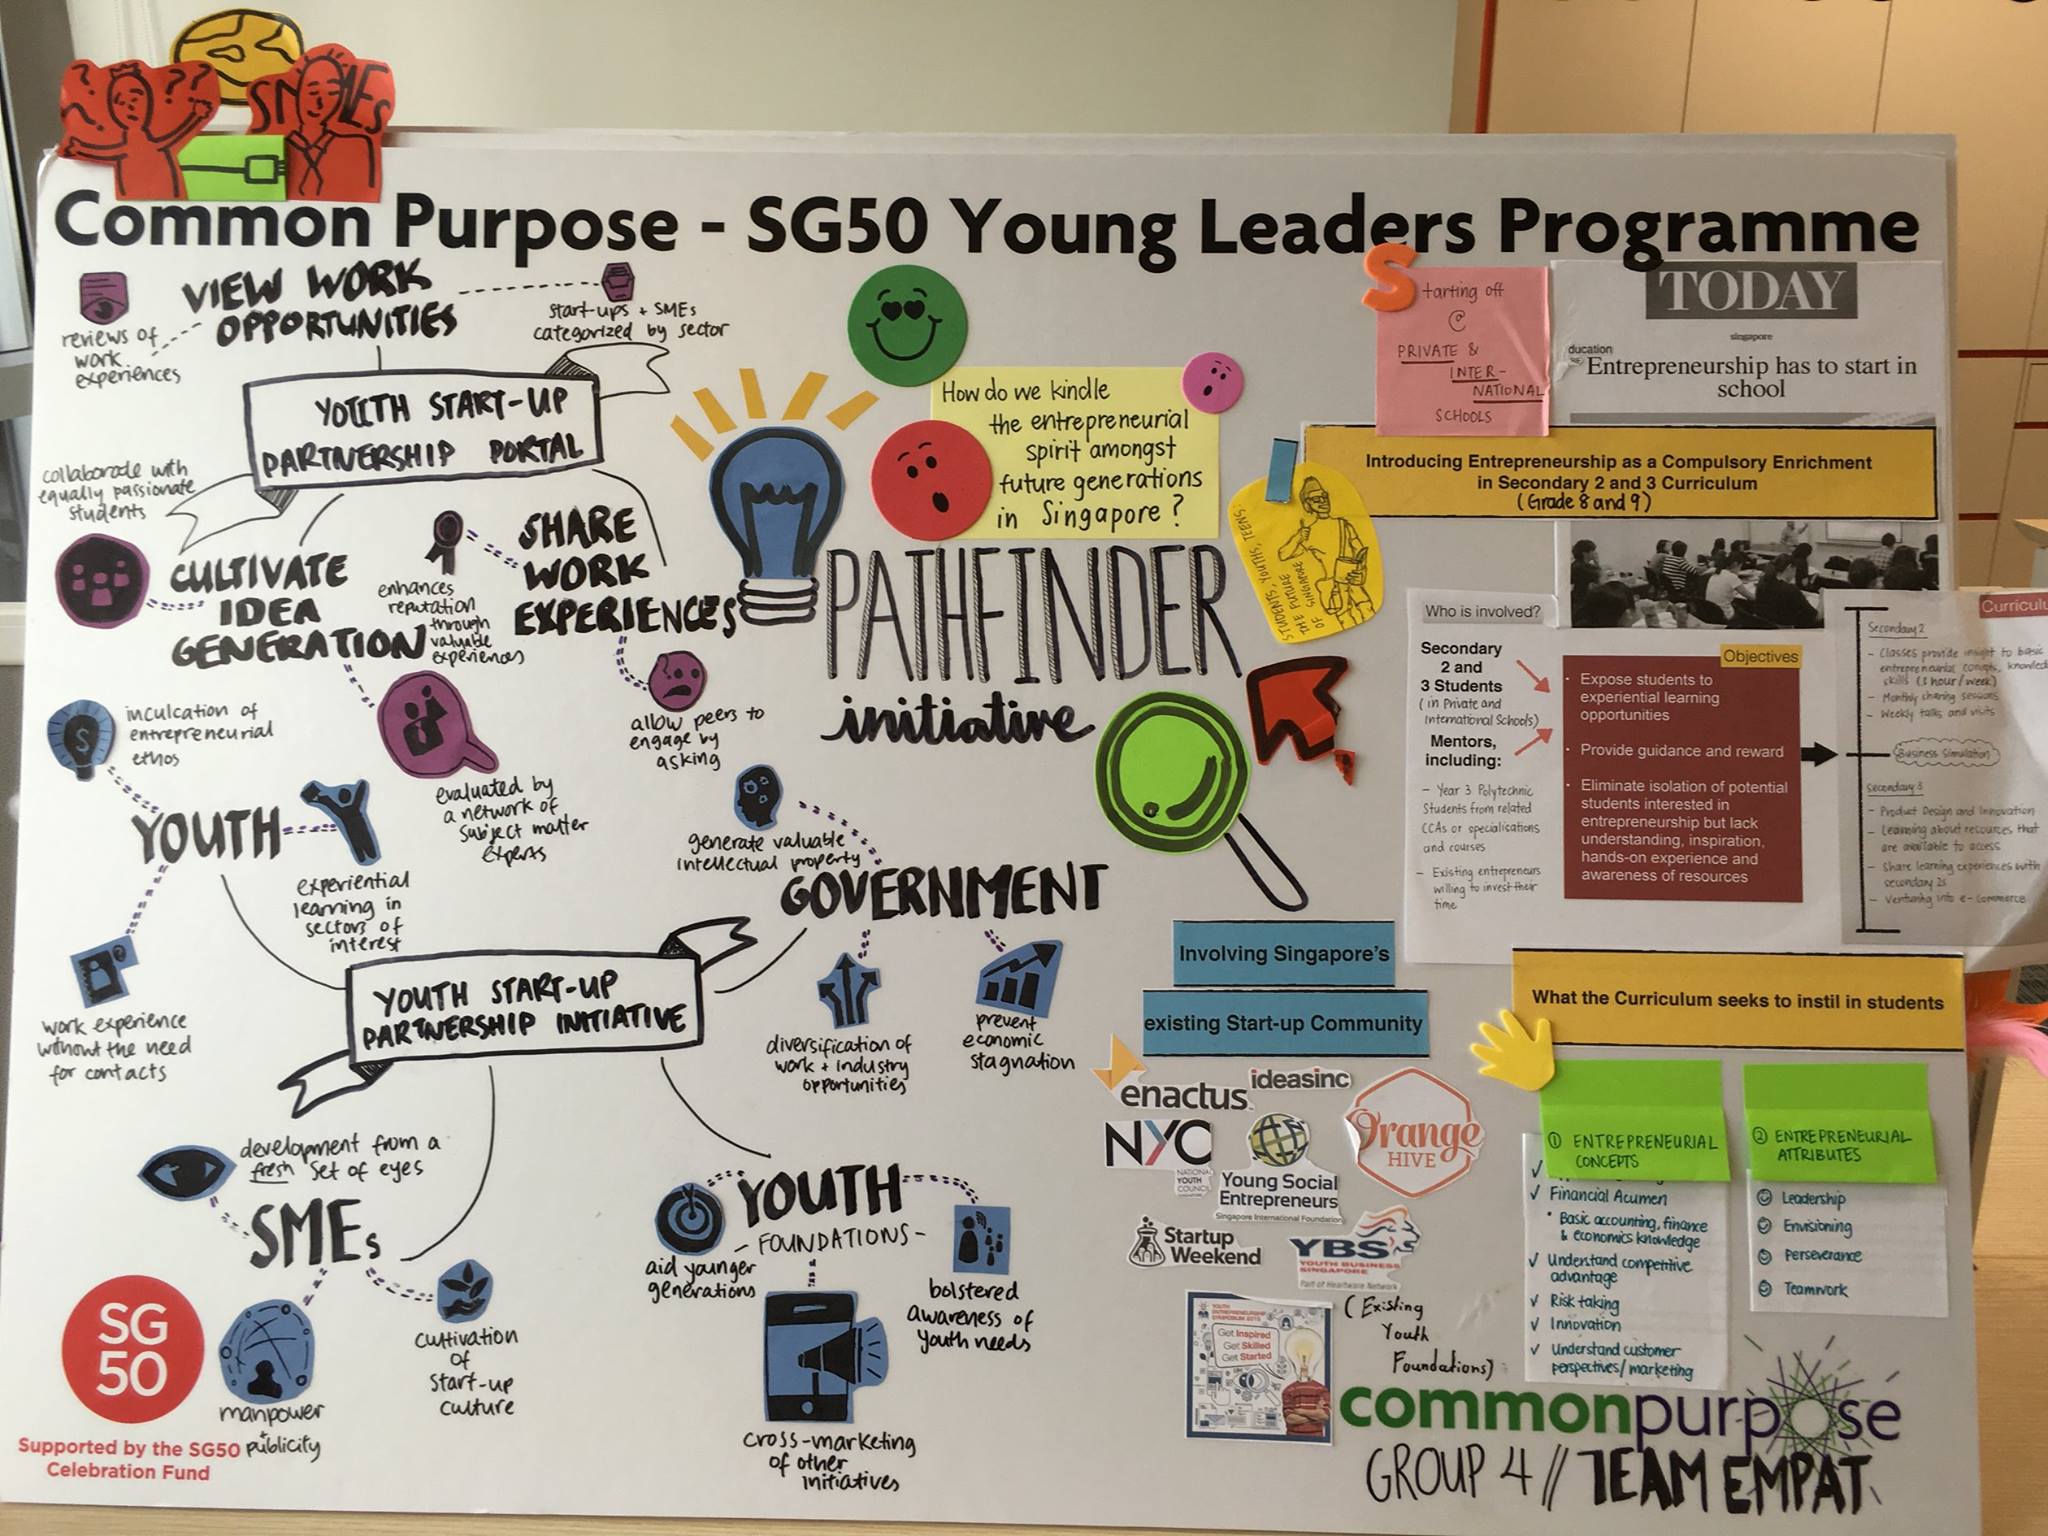 SMEs
Common Purpose - SG50 Young Leaders Programme
VIEW WORK
OPPORTUNITIES
reviews of
work
experiences
start-ups + SMEs
categorized by sector
YOUTH START-UP
PARTNERSHIP PORTAL
collaborate with
equally passionate
students
CULTIVATE
IDEA
GENERATION
enhances
reputation
through
valuable
experiences
SHARE
WORK
EXPERIENCES
evaluated by
a network of
subject matter
experts
allow peers to
engage by
asking
How do we kindle
the entrepreneurial
spirit amongst
future generations
in Singapore?
PATHFINDER
initiative
STUDENTS, YOUTHS, TEENS.
THE FUTURE
OF SINGAPORE
inculcation of
entrepreneurial
ethos
YOUTH
experiential
learning in
sectors of
interest
work experience
without the need
for contacts
generate valuable
intellectual property
GOVERNMENT
diversification of
work + industry
opportunities
prevent
economic
stagnation
YOUTH START-UP
PARTNERSHIP INITIATIVE
development from a
fresh set of eyes
SMEs
manpower
+
publicity
cultivation
of
start-up
culture
YOUTH
- FOUNDATIONS -
aid younger
generations
bolstered
awareness of
youth needs
cross-marketing
of other
initiatives
SG
50
Supported by the SG50
Celebration Fund
Starting off
@
PRIVATE &
INTER-
NATIONAL
SCHOOLS
TODAY
singapore
ducation
Entrepreneurship has to start in
school
Introducing Entrepreneurship as a Compulsory Enrichment
in Secondary 2 and 3 Curriculum
(Grade 8 and 9)
Who is involved?
Secondary
2 and
3 Students
(in Private and
International Schools)
Mentors,
including:
- Year 3 Polytechnic
Students from related
CCAs or specialisations
and courses
- Existing entrepreneurs
willing to invest their
time
Objectives
· Expose students to
experiential learning
opportunities
· Provide guidance and reward
· Eliminate isolation of potential
students interested in
entrepreneurship but lack
understanding, inspiration,
hands-on experience and
awareness of resources
Curriculu
Secondary 2
- Classes provide insight to basic
entrepreneurial concepts, knowled
skills (1 hour/week)
- Monthly sharing sessions
- Weekly talks and visits
Business Simulation
Secondary 3
- Product Design and Innovation
- Learning about resources that
are available to access
- Share learning experiences with
secondary 2s
- Venturing into e-commerce
Involving Singapore's
existing Start-up Community
enactus
ideasinc
Orange
HIVE
NYC
NATIONAL
YOUTH
COUNCIL
Young Social
Entrepreneurs
Singapore International Foundation
Startup
Weekend
YBS
YOUTH BUSINESS
SINGAPORE
Part of Heartware Network
YOUTH
ENTREPRENEURSHIP
SYMPOSIUM 2015
Get Inspired
Get Skilled
Get Started
(Existing
Youth
Foundations)
What the Curriculum seeks to instil in students
① ENTREPRENEURIAL
CONCEPTS
✓ Financial Acumen
• Basic accounting, finance
& economics knowledge
✓ Understand competitive
advantage
✓ Risk taking
✓ Innovation
✓ Understand customer
perspectives/marketing
② ENTREPRENEURIAL
ATTRIBUTES
Leadership
Envisioning
Perseverance
Teamwork
commonpurpose
GROUP 4 // TEAM EMPAT